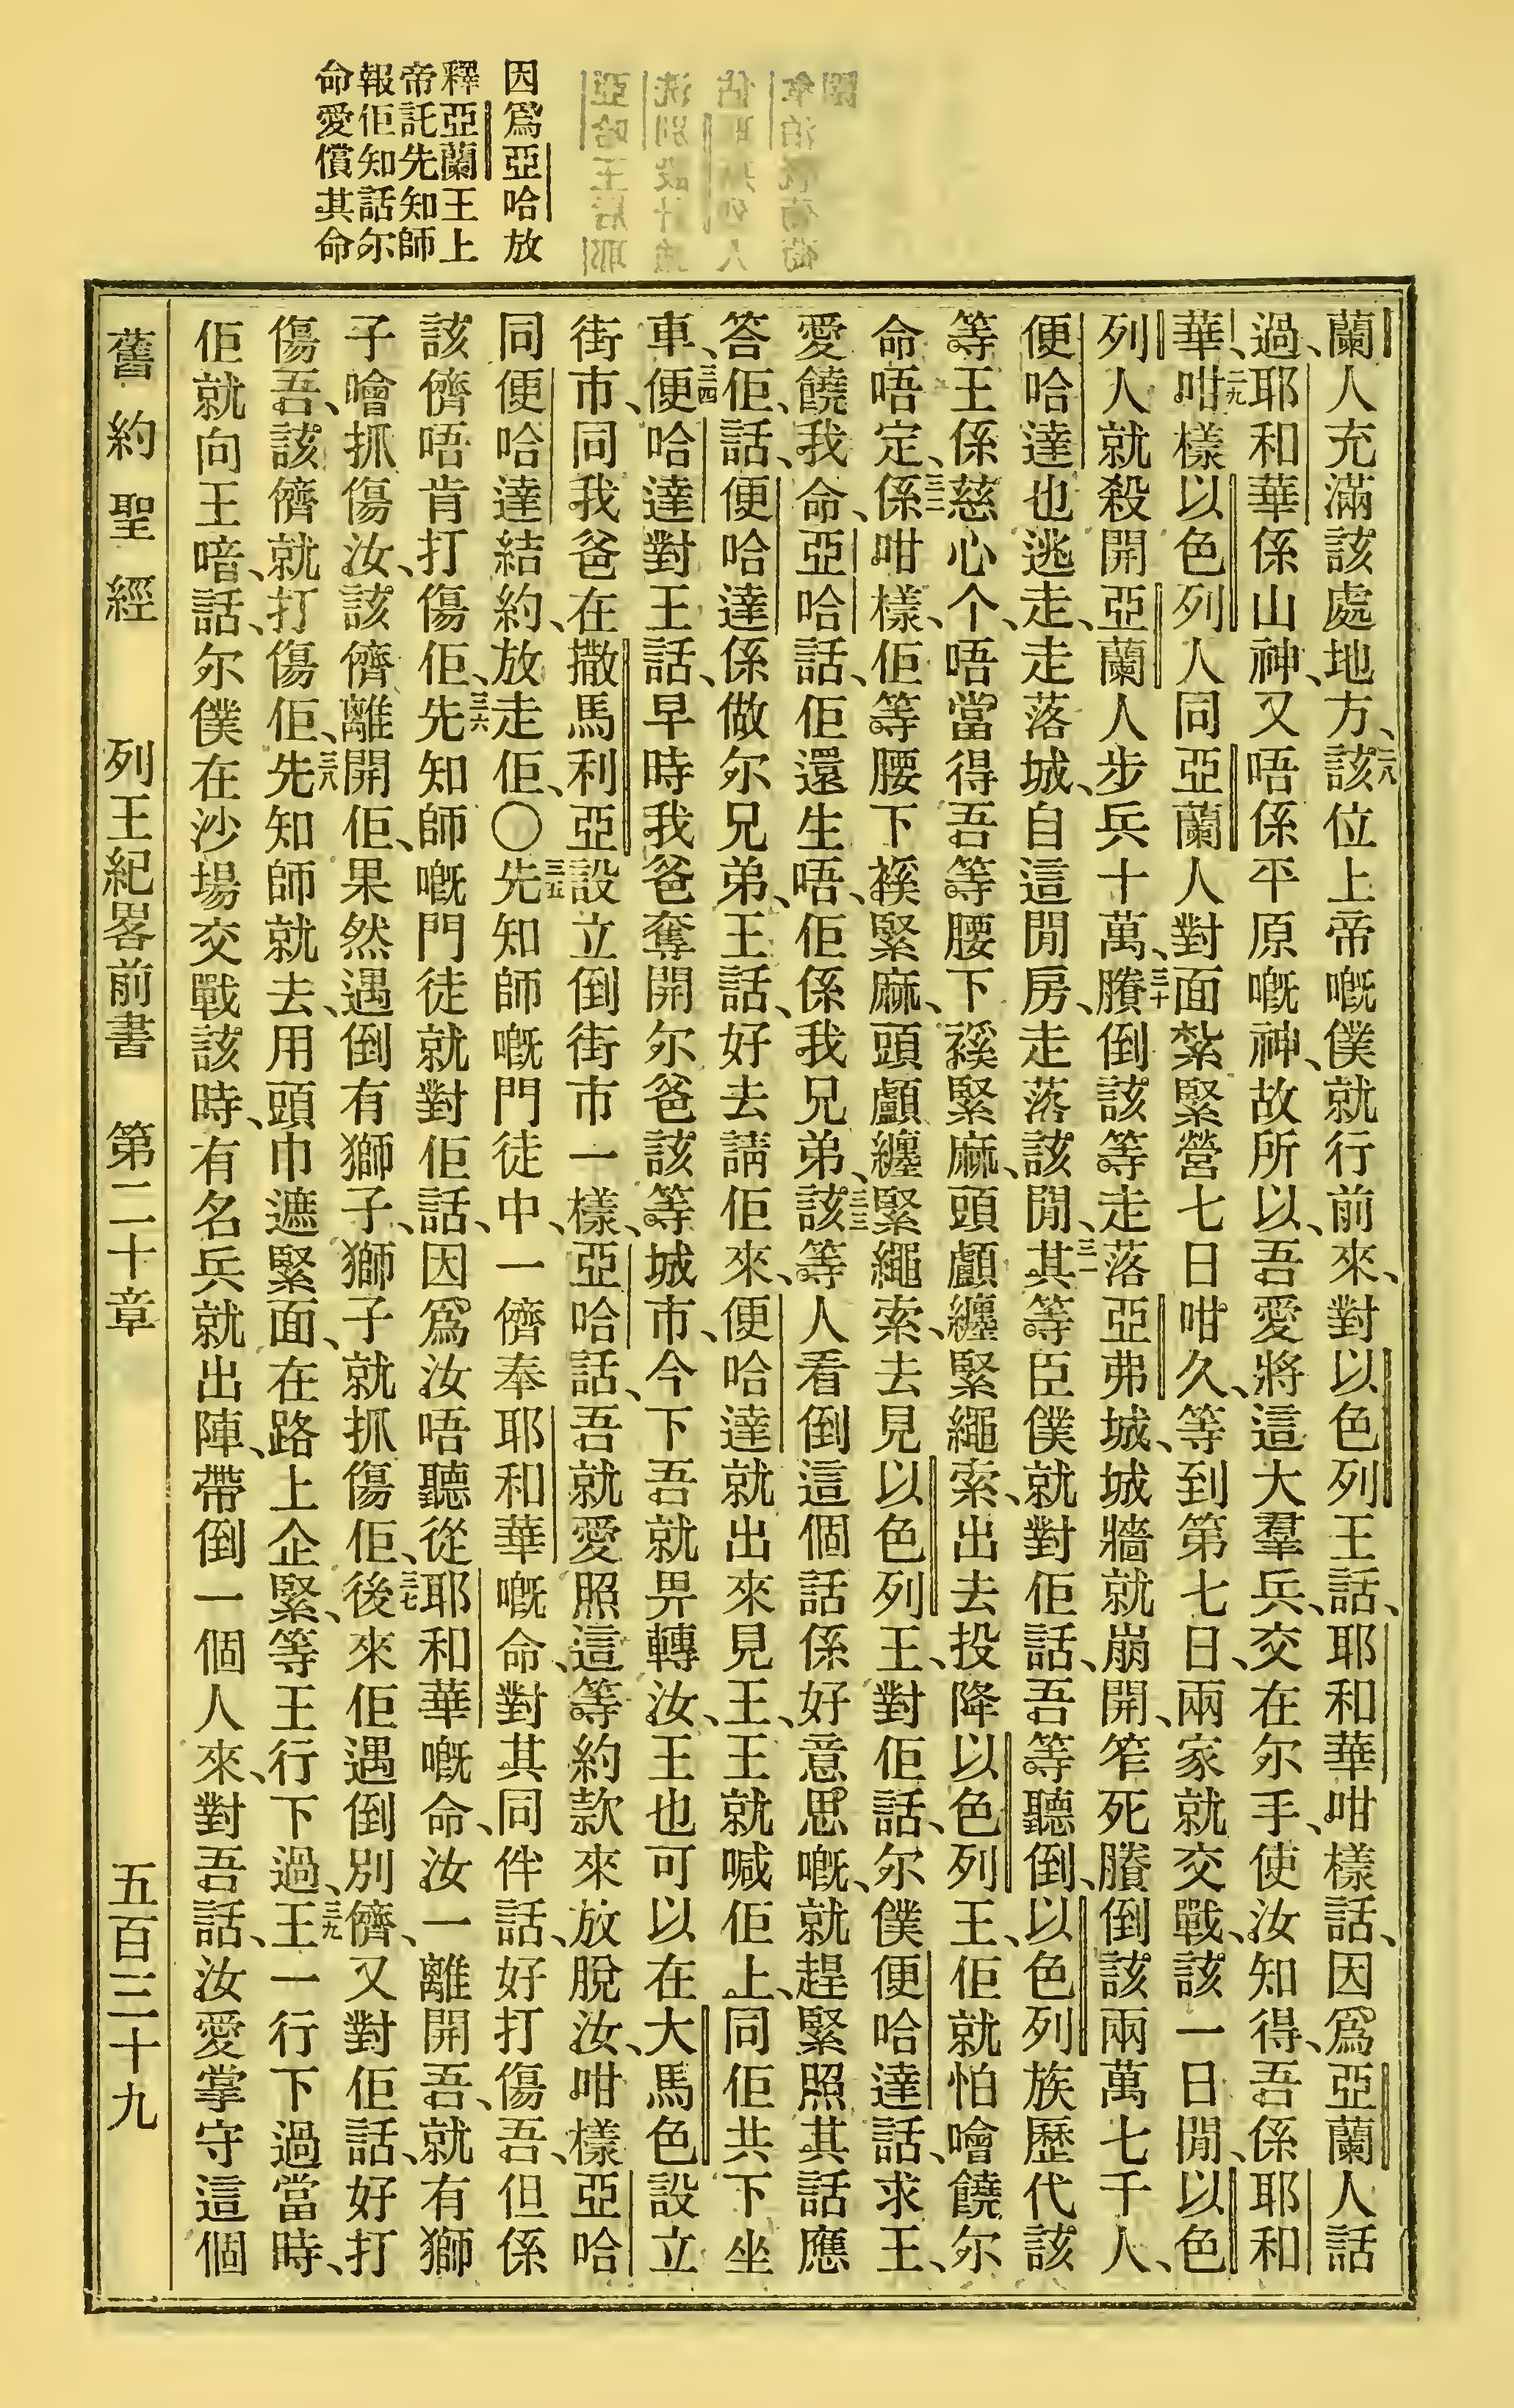 因爲亞哈放
釋亞蘭王上
帝託先知師
報佢知話尔
命愛償其命
蘭人充滿該處地方、二八該位上帝嘅僕就行前來、對以色列王話、耶和華咁樣話、因爲亞蘭人話
過、耶和華係山神、又唔係平原嘅神、故所以、吾愛將這大羣兵、交在尔手、使汝知得、吾係耶和
華、二九咁樣以色列人同亞蘭人對面紮緊營七日咁久、等到第七日、兩家就交戰、該一日間、以色
列人就殺開亞蘭人步兵十萬、三十賸倒該等走落亞弗城、城牆就崩開、笮死賸倒該兩萬七千人、
便哈達也逃走、走落城、自這間房、走落該間、三一其等臣僕就對佢話、吾等聽倒、以色列族歷代該
等王係慈心个、唔當得吾等腰下䙎緊麻、頭顱纏緊繩索、出去投降以色列王、佢就怕噲饒尔
命唔定、三二係咁樣、佢等腰下䙎緊麻、頭顱纏緊繩索、去見以色列王、對佢話、尔僕便哈達話、求王、
愛饒我命、亞哈話、佢還生唔、佢係我兄弟、三三該等人看倒這個話係好意思嘅、就趕緊照其話應
答佢、話、便哈達係做尔兄弟、王話、好去請佢來、便哈達就出來見王、王就喊佢上、同佢共下坐
車、三四便哈達對王話、早時我爸奪開尔爸該等城市、今下吾就畀轉汝、王也可以在大馬色設立
街市、同我爸在撒馬利亞設立倒街市一樣、亞哈話、吾就愛照這等約款來放脫汝、咁樣亞哈
同便哈達結約、放走佢、〇三五先知師嘅門徒中、一儕奉耶和華嘅命、對其同伴話、好打傷吾、但係
該儕唔肯打傷佢、三六先知師嘅門徒就對佢話、因爲汝唔聽從耶和華嘅命、汝一離開吾、就有獅
子噲抓傷汝、該儕離開佢、果然遇倒有獅子、獅子就抓傷佢、三七後來佢遇倒別儕、又對佢話、好打
傷吾、該儕就打傷佢、三八先知師就去、用頭巾遮緊面、在路上企緊、等王行下過、三九王一行下過當時、
佢就向王喑、話、尔僕在沙場交戰該時、有名兵就出陣、帶倒一個人來、對吾話、汝愛掌守這個
舊約聖經　列王紀畧前書　第二十章　五百三十九